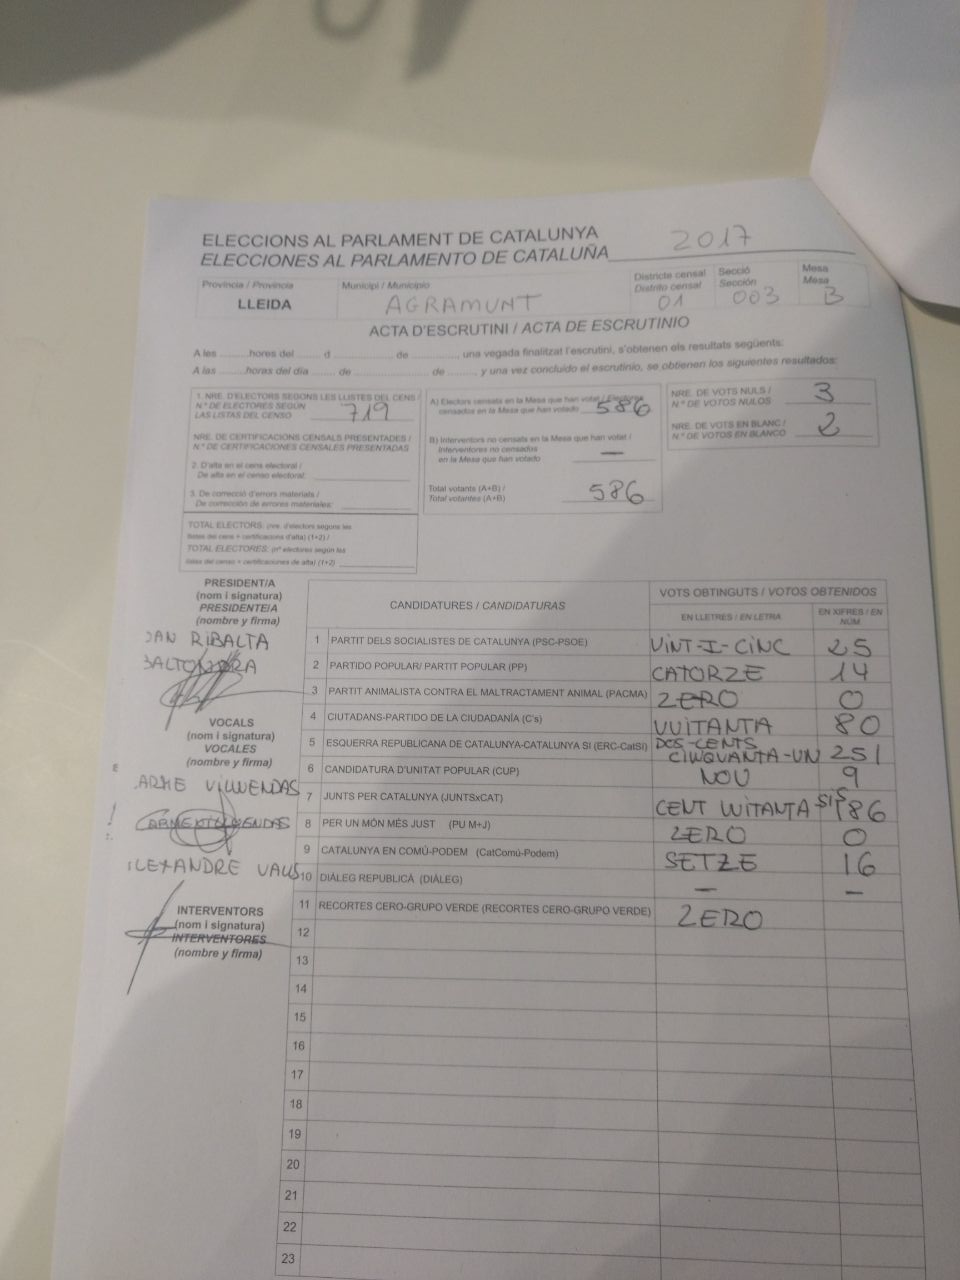 ELECCIONS AL PARLAMENT DE CATALUNYA
ELECCIONES AL PARLAMENTO DE CATALUÑA 2017
Provincia / Provincia
LLEIDA
Municipi / Municipio
AGRAMUNT
Districte censal
Distrito censal
01
Secció
Sección
003
Mesa
Mesa
B
ACTA D'ESCRUTINI / ACTA DE ESCRUTINIO
A les ........hores del ...... d ................ de ............, una vegada finalitzat l'escrutini, s'obtenen els resultats següents:
A las ........horas del día ...... de ................ de ........, y una vez concluido el escrutinio, se obtienen los siguientes resultados:
1. NRE. D'ELECTORS SEGONS LES LLISTES DEL CENS /
N.º DE ELECTORES SEGÚN
LAS LISTAS DEL CENSO 719
NRE. DE CERTIFICACIONS CENSALS PRESENTADES /
N.º DE CERTIFICACIONES CENSALES PRESENTADAS
2. D'alta en el cens electoral /
De alta en el censo electoral:
3. De correcció d'errors materials /
De corrección de errores materiales:
TOTAL ELECTORS: (nre. d'electors segons les
llistes del cens + certificacions d'alta) (1+2) /
TOTAL ELECTORES: (nº electores según las
listas del censo + certificaciones de alta) (1+2)
A) Electors censats en la Mesa que han votat / Electores
censados en la Mesa que han votado 586
B) Interventors no censats en la Mesa que han votat /
Interventores no censados
en la Mesa que han votado —
Total votants (A+B) /
Total votantes (A+B) 586
NRE. DE VOTS NULS /
N.º DE VOTOS NULOS 3
NRE. DE VOTS EN BLANC /
N.º DE VOTOS EN BLANCO 2
PRESIDENT/A
(nom i signatura)
PRESIDENTE/A
(nombre y firma)
RIBALTA
VOCALS
(nom i signatura)
VOCALES
(nombre y firma)
INTERVENTORS
(nom i signatura)
INTERVENTORES
(nombre y firma)
CANDIDATURES / CANDIDATURAS
VOTS OBTINGUTS / VOTOS OBTENIDOS
EN LLETRES / EN LETRA
EN XIFRES / EN NÚM
1 PARTIT DELS SOCIALISTES DE CATALUNYA (PSC-PSOE) VINT-I-CINC 25
2 PARTIDO POPULAR/ PARTIT POPULAR (PP) CATORZE 14
3 PARTIT ANIMALISTA CONTRA EL MALTRACTAMENT ANIMAL (PACMA) ZERO 0
4 CIUTADANS-PARTIDO DE LA CIUDADANÍA (C's) VUITANTA 80
5 ESQUERRA REPUBLICANA DE CATALUNYA-CATALUNYA SÍ (ERC-CatSí) DOS-CENTS CINQUANTA-UN 251
6 CANDIDATURA D'UNITAT POPULAR (CUP) NOU 9
7 JUNTS PER CATALUNYA (JUNTSxCAT) CENT VUITANTA SIS 186
8 PER UN MÓN MÉS JUST (PU M+J) ZERO 0
9 CATALUNYA EN COMÚ-PODEM (CatComú-Podem) SETZE 16
10 DIÀLEG REPUBLICÀ (DIÀLEG) — —
11 RECORTES CERO-GRUPO VERDE (RECORTES CERO-GRUPO VERDE) ZERO
12
13
14
15
16
17
18
19
20
21
22
23